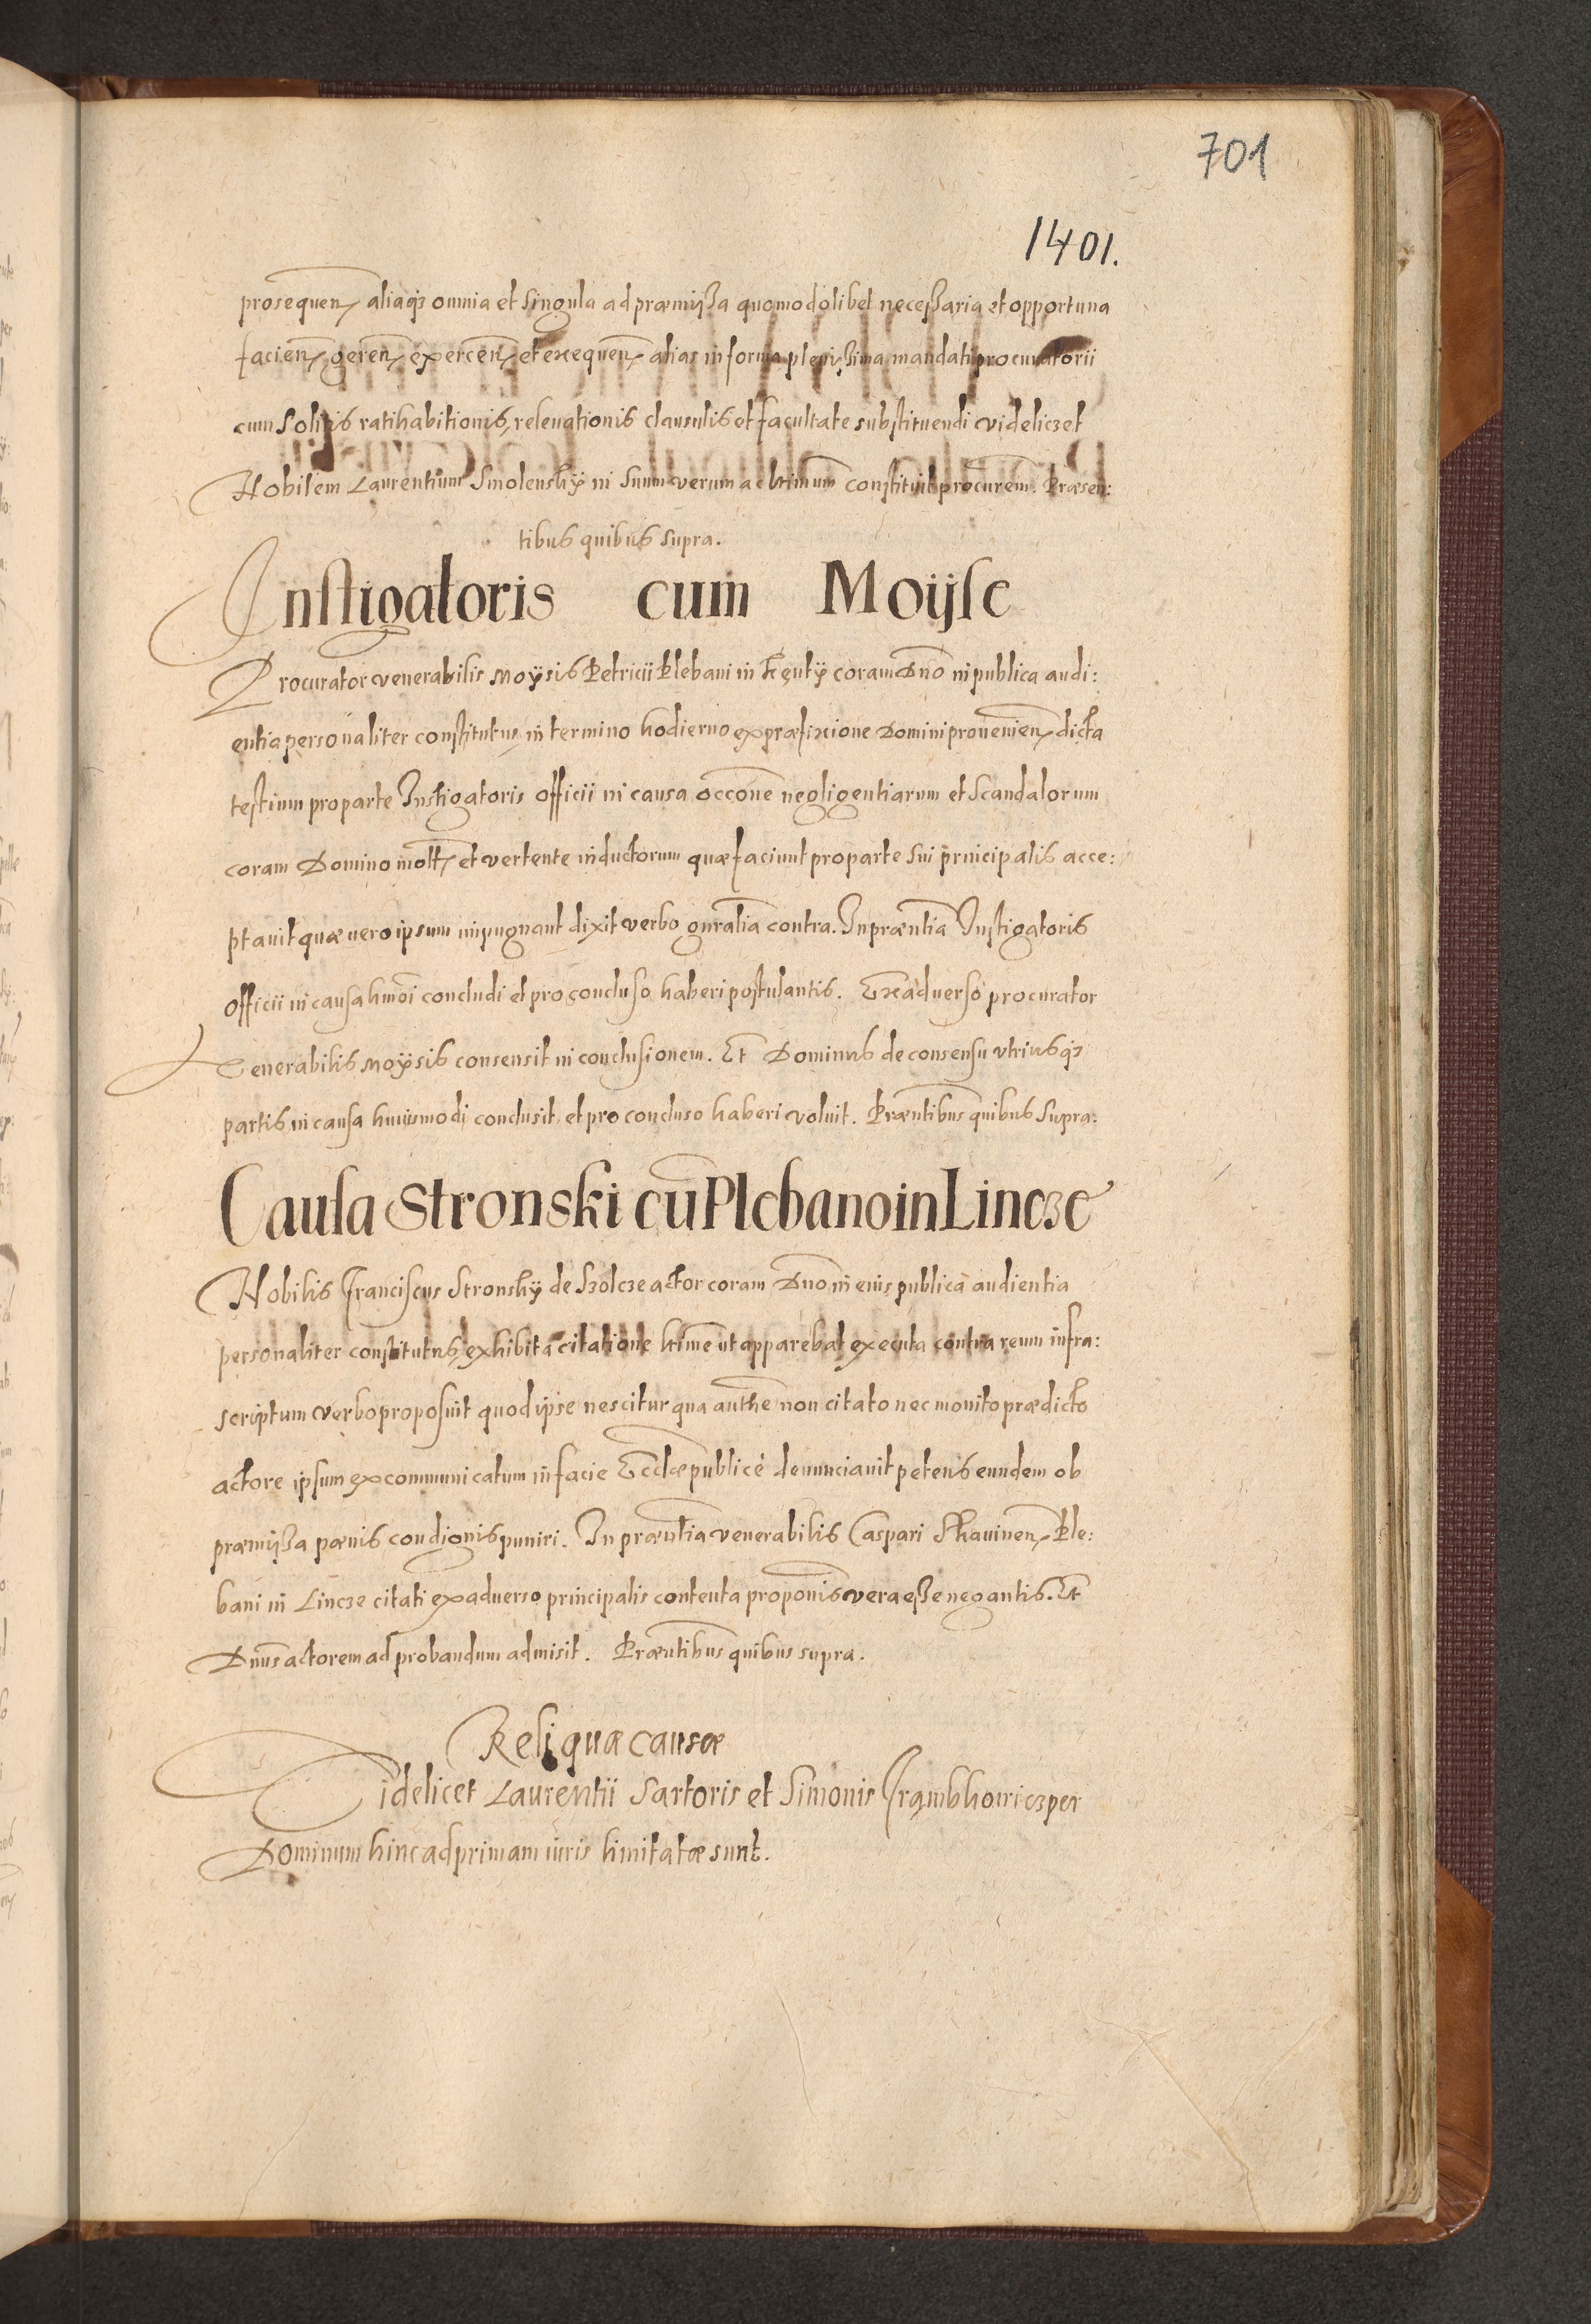 701
1401.
prosequen̄ aliaqȝ omnia et singula ad præmissa quomodolibet necessaria et opportuna
facien̄ geren̄ exercen̄ et exequen̄ alias in forma plenissima mandati procuratorii
cum solitis ratihabitionis, relevationis clausulis et facultate substituendi videliczet
Nobilem Laurentium Smolensky in suum verum ac ltimum constituit procurem. Præsen:
tibus quibus supra.
Instigatoris cum Moijse
Procurator venerabilis Moÿsis Petricii Plebani in Kęntÿ coram Dno in publica audi:
entia personaliter constitutus, in termino hodierno ex præfixione Domini provenien̄ dicta
testium pro parte Instigatoris officii in causa occone negligentiarum et scandalorum
coram Domino mott et vertente inductorum quæ faciunt pro parte sui principalis acce:
ptavit quæ vero ipsum impugnant dixit verbo gnralia contra. In præntia Instigatoris
officii in causa hmoi concludi et pro concluso haberi postulantis. Ex adverso procurator
Venerabilis Moÿsis consensit in conclusionem. Et Dominus de consensu utriusqȝ
partis in causa huiusmodi conclusit et pro concluso haberi voluit. Præntibus quibus supra.
Causa Stronski cū Plebano in Lincze
Nobilis Franciscus Stronskÿ de Szolcze actor coram Dno in eius publica audientia
personaliter constitutus, exhibita citatione ltime ut apparebat executa contra reum infra:
scriptum verbo proposuit quod ipse nescitur qua authe non citato nec monito prædicto
actore ipsum excommunicatum in facie Ecclæ publicè denunciavit petens eundem ob
præmissa pœnis condignis puniri. In præntia venerabilis Caspari Skavinen̄ Ple:
bani in Lincze citati ex adverso principalis contenta proponis vera esse negantis. Et
Dnus actorem ad probandum admisit. Præntibus quibus supra.
Reliquæ causæ
Videlicet Laurentii Sartoris et Simonis Frąmbkowicz per
Dominum hinc ad primam iuris limitatæ sunt.